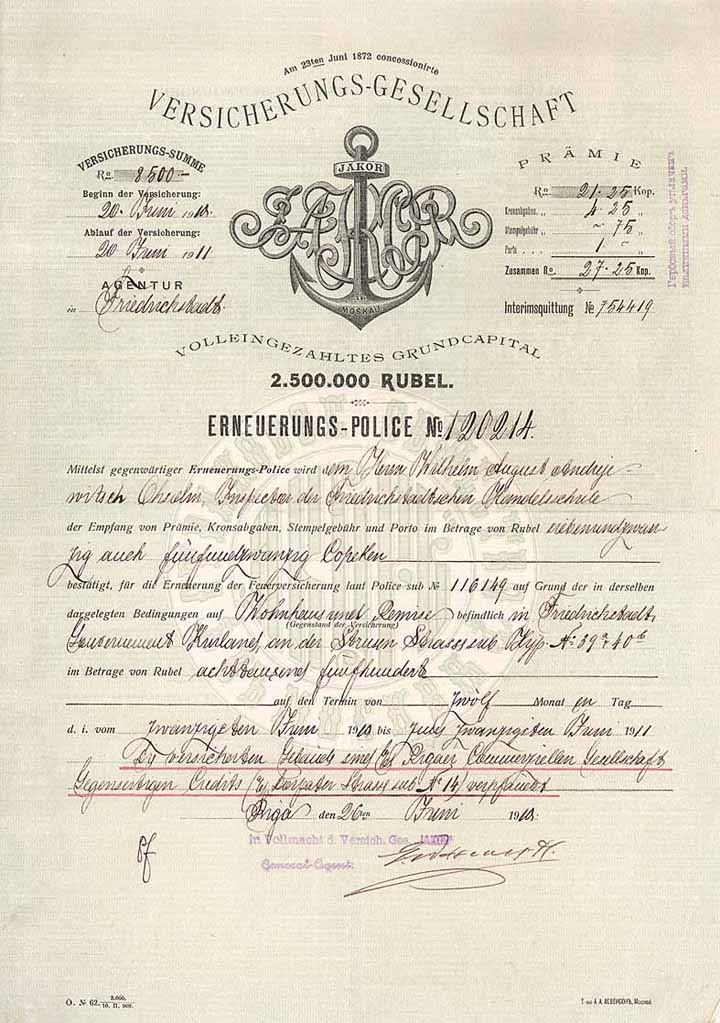 Am 23ten Juni 1872 concessionirte
VERSICHERUNGS-GESELLSCHAFT
VERSICHERUNGS-SUMME
Ro 8500
Beginn der Versicherung:
20. Juni 1910.
Ablauf der Versicherung:
20 Juni 1911
AGENTUR
in Friedrichstadt.
JAKOR
JAKOR
in
MOSKAU
PRÄMIE
Ro 21.25 Kop.
Kronsabgaben. „ 4.25 „
Stempelgebühr „ - 75 „
Porto „ 1.- „
Zusammen Ro. 27.25 Kop.
Interimsquittung № 754419.
Гербовый сборъ уплаченъ
наличными деньгами.
VOLLEINGEZAHLTES GRUNDCAPITAL
2.500.000 RUBEL.
ERNEUERUNGS-POLICE № 120214.
Mittelst gegenwärtiger Erneuerungs-Police wird dem Herrn Wilhelm August Andreje-
witsch Inspector der Friedrichstadtschen Handelsschule
der Empfang von Prämie, Kronsabgaben, Stempelgebühr und Porto im Betrage von Rubel siebenundzwan
zig auch fünfundzwanzig Copeken
bestätigt, für die Erneuerung der Feuerversicherung laut Police sub № 116149 auf Grund der in derselben
dargelegten Bedingungen auf Wohnhaus und Remise befindlich in Friedrichstadt,
(Gegenstand der Versicherung)
Gouvernement Kurland, an der Strasse sub Hyp. № 39a 40b
im Betrage von Rubel achttausend fünfhundert
auf den Termin von Zwölf Monat en Tag
d. i. vom Zwanzigsten Juni 1910 bis zum Zwanzigsten Juni 1911
Die versicherten Gebäude sind der Rigaer Commerziellen Gesellschaft
Gegenseitigen Credits (Dorpater Strasse sub № 14) verpfändet
Riga den 26en Juni 1910.
In Vollmacht d. Versich. Ges. JAKOR
General-Agent:
O. № 62. 3.000. 10. II. 908.
Т-во А. А. ЛЕВЕНСОНЪ, Москва.